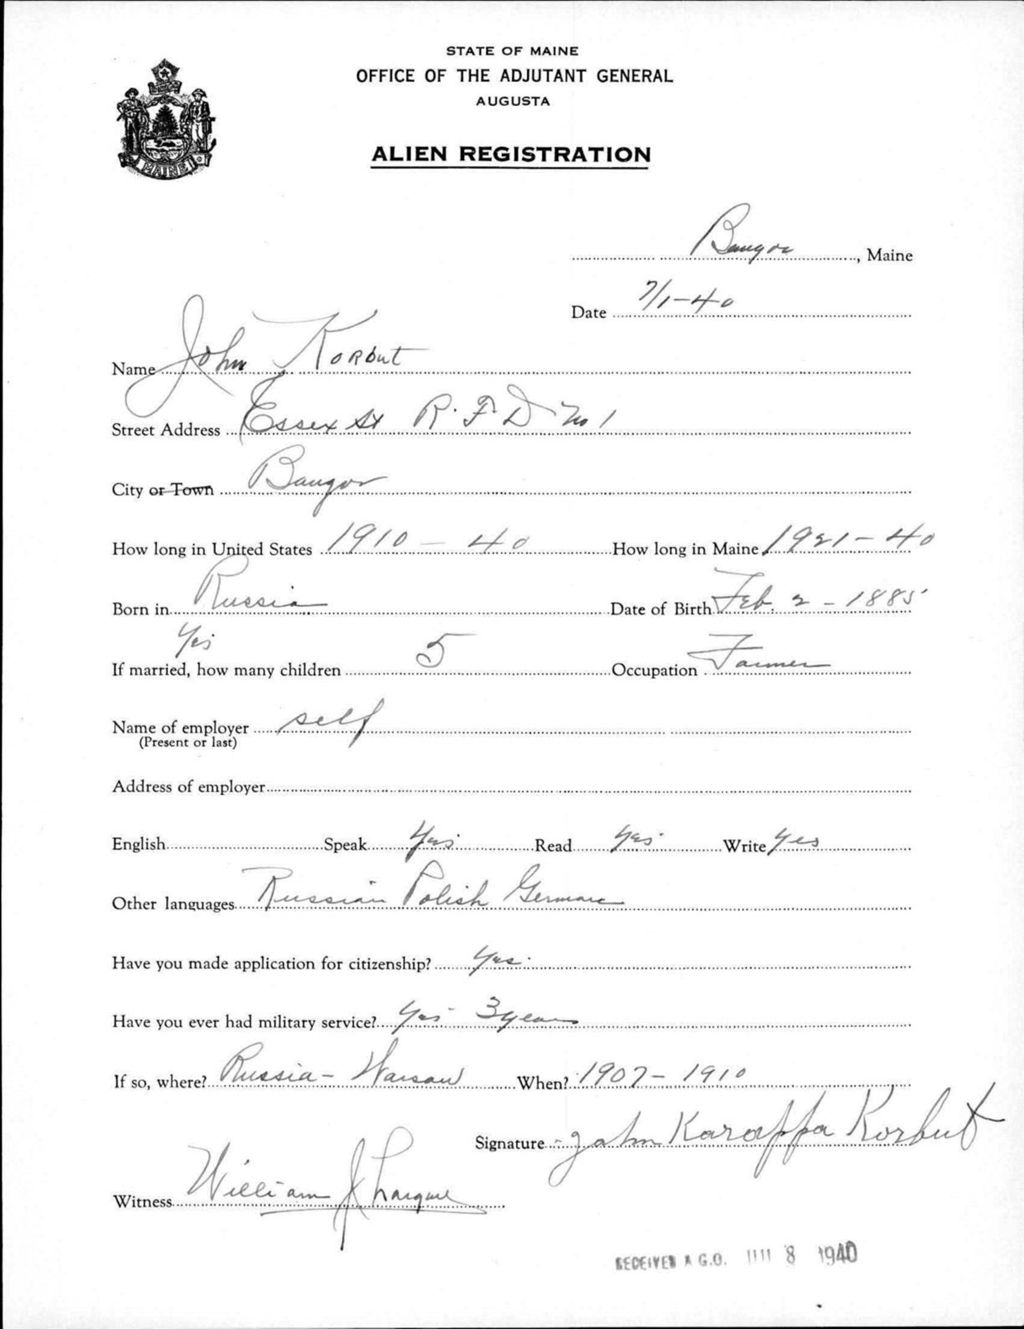 STATE OF MAINE
OFFICE OF THE ADJUTANT GENERAL
AUGUSTA
ALIEN REGISTRATION
MAINE
Bangor, Maine
Date 7/1-40
Name John Korbut
Street Address Essex St R.F.D No 1
City or Town Bangor
How long in United States 1910 - 40 How long in Maine 1921 - 40
Born in Russia Date of Birth Feb. 2 - 1885
Yes
If married, how many children 5 Occupation Farmer
Name of employer self
(Present or last)
Address of employer
English Speak Yes Read Yes Write Yes
Other languages Russian Polish German
Have you made application for citizenship? Yes
Have you ever had military service? Yes 3 years
If so, where? Russia - Warsaw When? 1907 - 1910
Signature John Karoffa Korbut
Witness William J
RECEIVED A.G.O. 8 1940